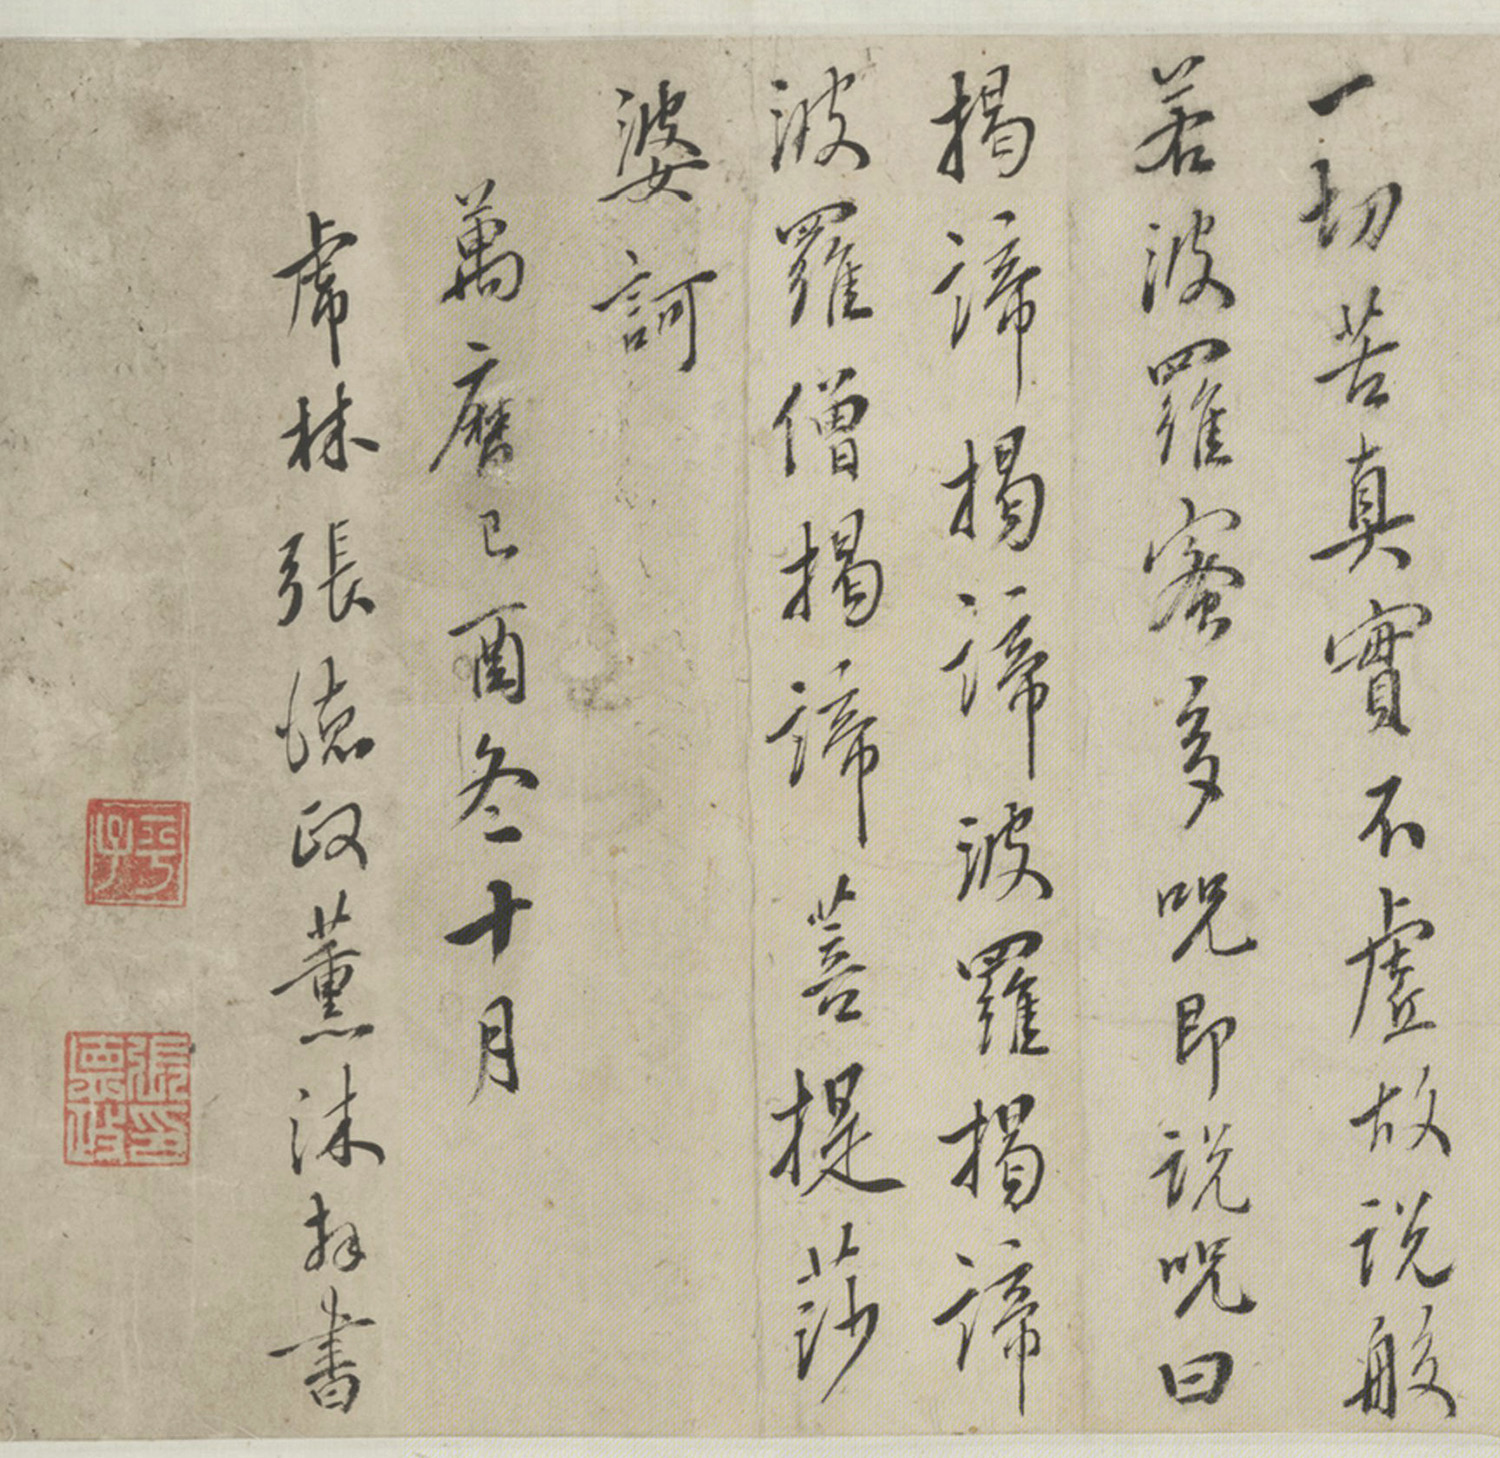 一切苦真實不虛故說般
若波羅蜜多呪即說呪曰
揭諦揭諦波羅揭諦
波羅僧揭諦菩提莎
婆訶
萬曆己酉冬十月
虎林張德政薰沐拜書
張德政印